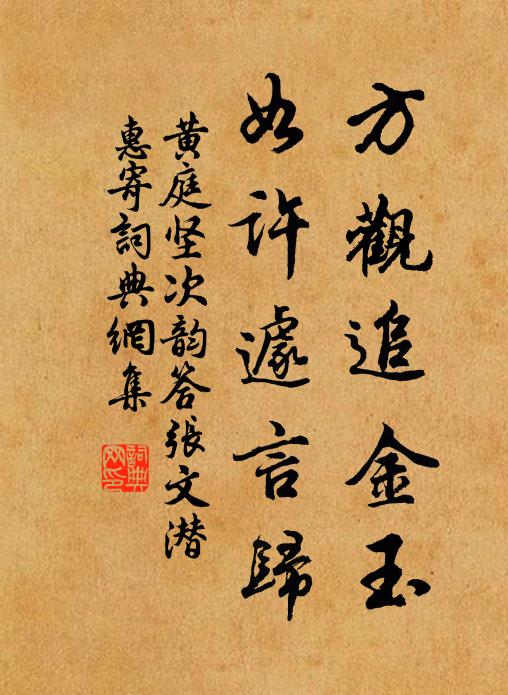 方觀追金玉
如許遽言歸
黄庭坚次韵答張文潜
惠寄詞典網集
詞典
网印